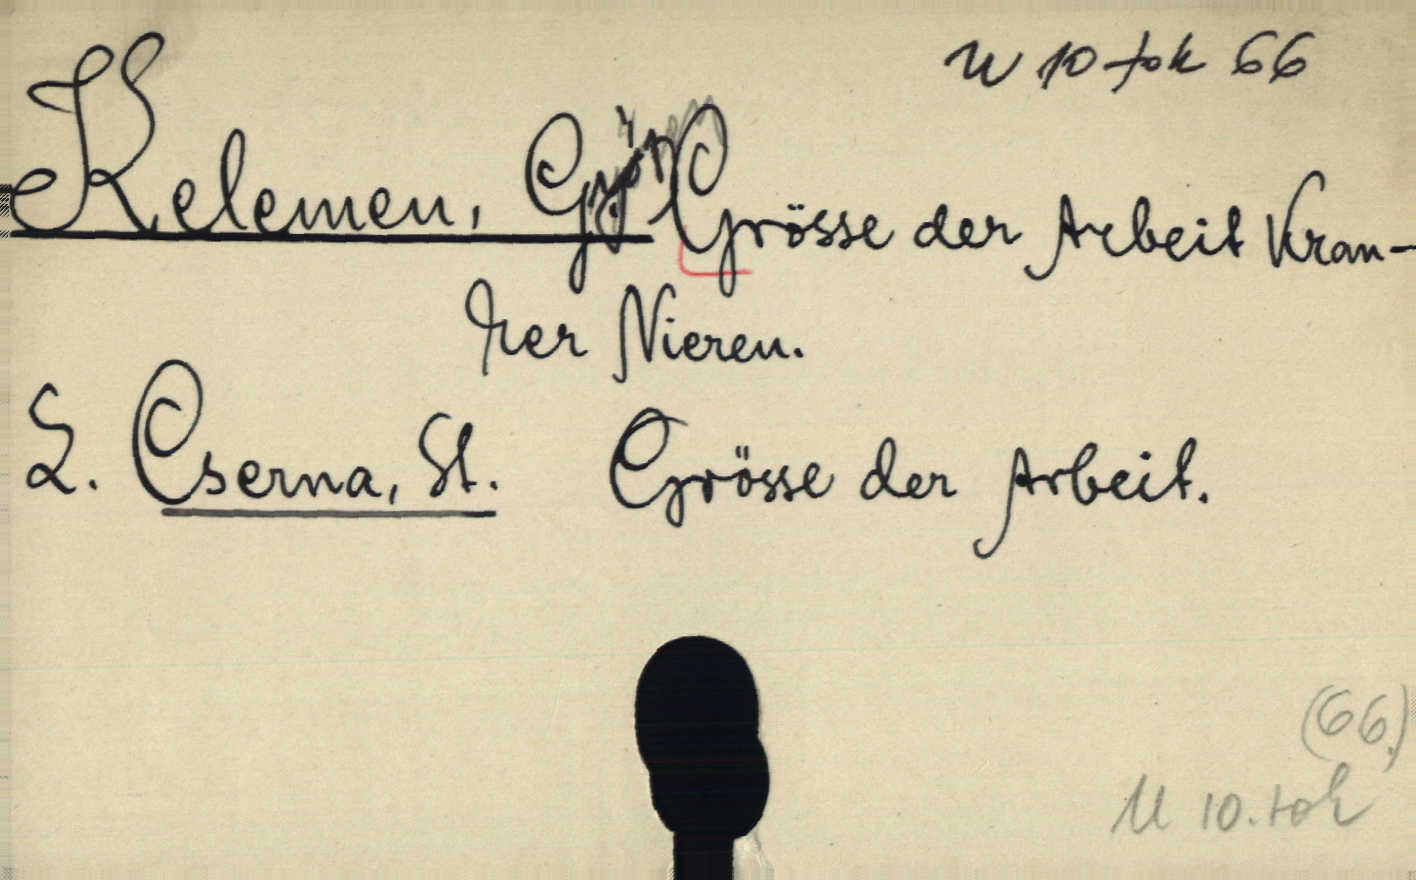 U 10 tok 66
Kelemen, Györ Grösse der Arbeit Kran-
ker Nieren.
L. Cserna, St. Grösse der Arbeit.
(66.)
U 10. tok